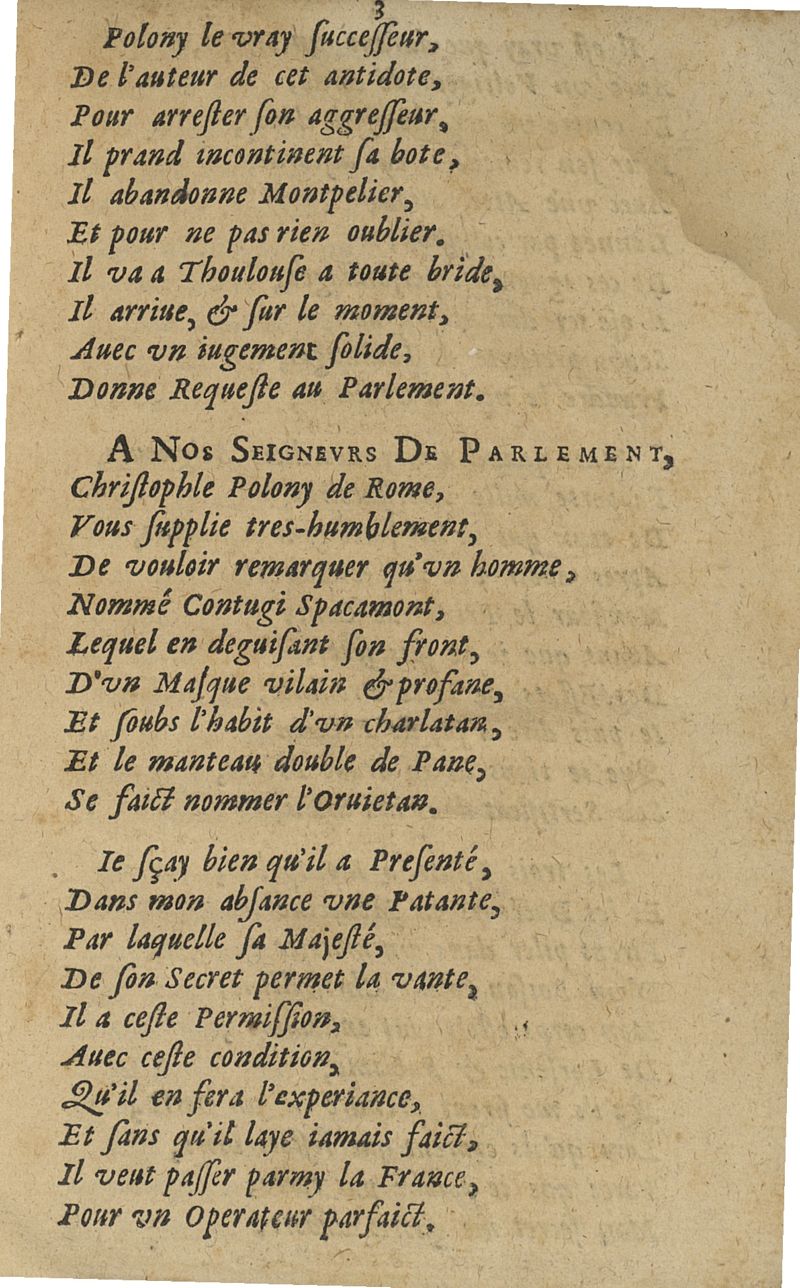 3
Polony le vray ſucceſſeur,
De l'auteur de cet antidote,
Pour arreſter ſon aggreſſeur,
Il prand incontinent ſa bote,
Il abandonne Montpelier,
Et pour ne pas rien oublier.
Il va a Thoulouſe a toute bride,
Il arriue, & ſur le moment,
Auec vn iugement ſolide,
Donne Requeſte au Parlement.
A NOS SEIGNEVRS DE PARLEMENT,
Chriſtophle Polony de Rome,
Vous ſupplie tres-humblement,
De vouloir remarquer qu'vn homme,
Nommé Contugi Spacamont,
Lequel en deguiſant ſon front,
D'vn Maſque vilain & profane,
Et ſoubs l'habit d'vn charlatan,
Et le manteau double de Pane,
Se faict nommer l'Oruietan.
Ie ſçay bien qu'il a Preſenté,
Dans mon abſance vne Patante,
Par laquelle ſa Majeſté,
De ſon Secret permet la vante,
Il a ceſte Permiſſion,
Auec ceſte condition,
Qu'il en fera l'experiance,
Et ſans qu'il laye iamais faict,
Il veut paſſer parmy la France,
Pour vn Operateur parfaict.